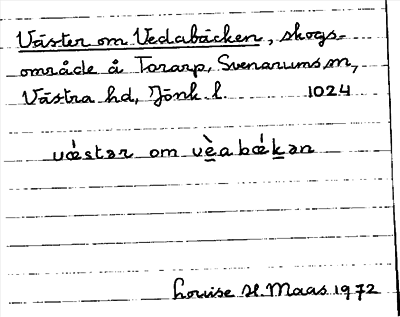 Väster om Vedabäcken, skogs-
område å Torarp, Svenarums sn,
Västra hd, Jönk. l. 1024
vǽstər om vèa bǽkən
Louise H. Maas 1972